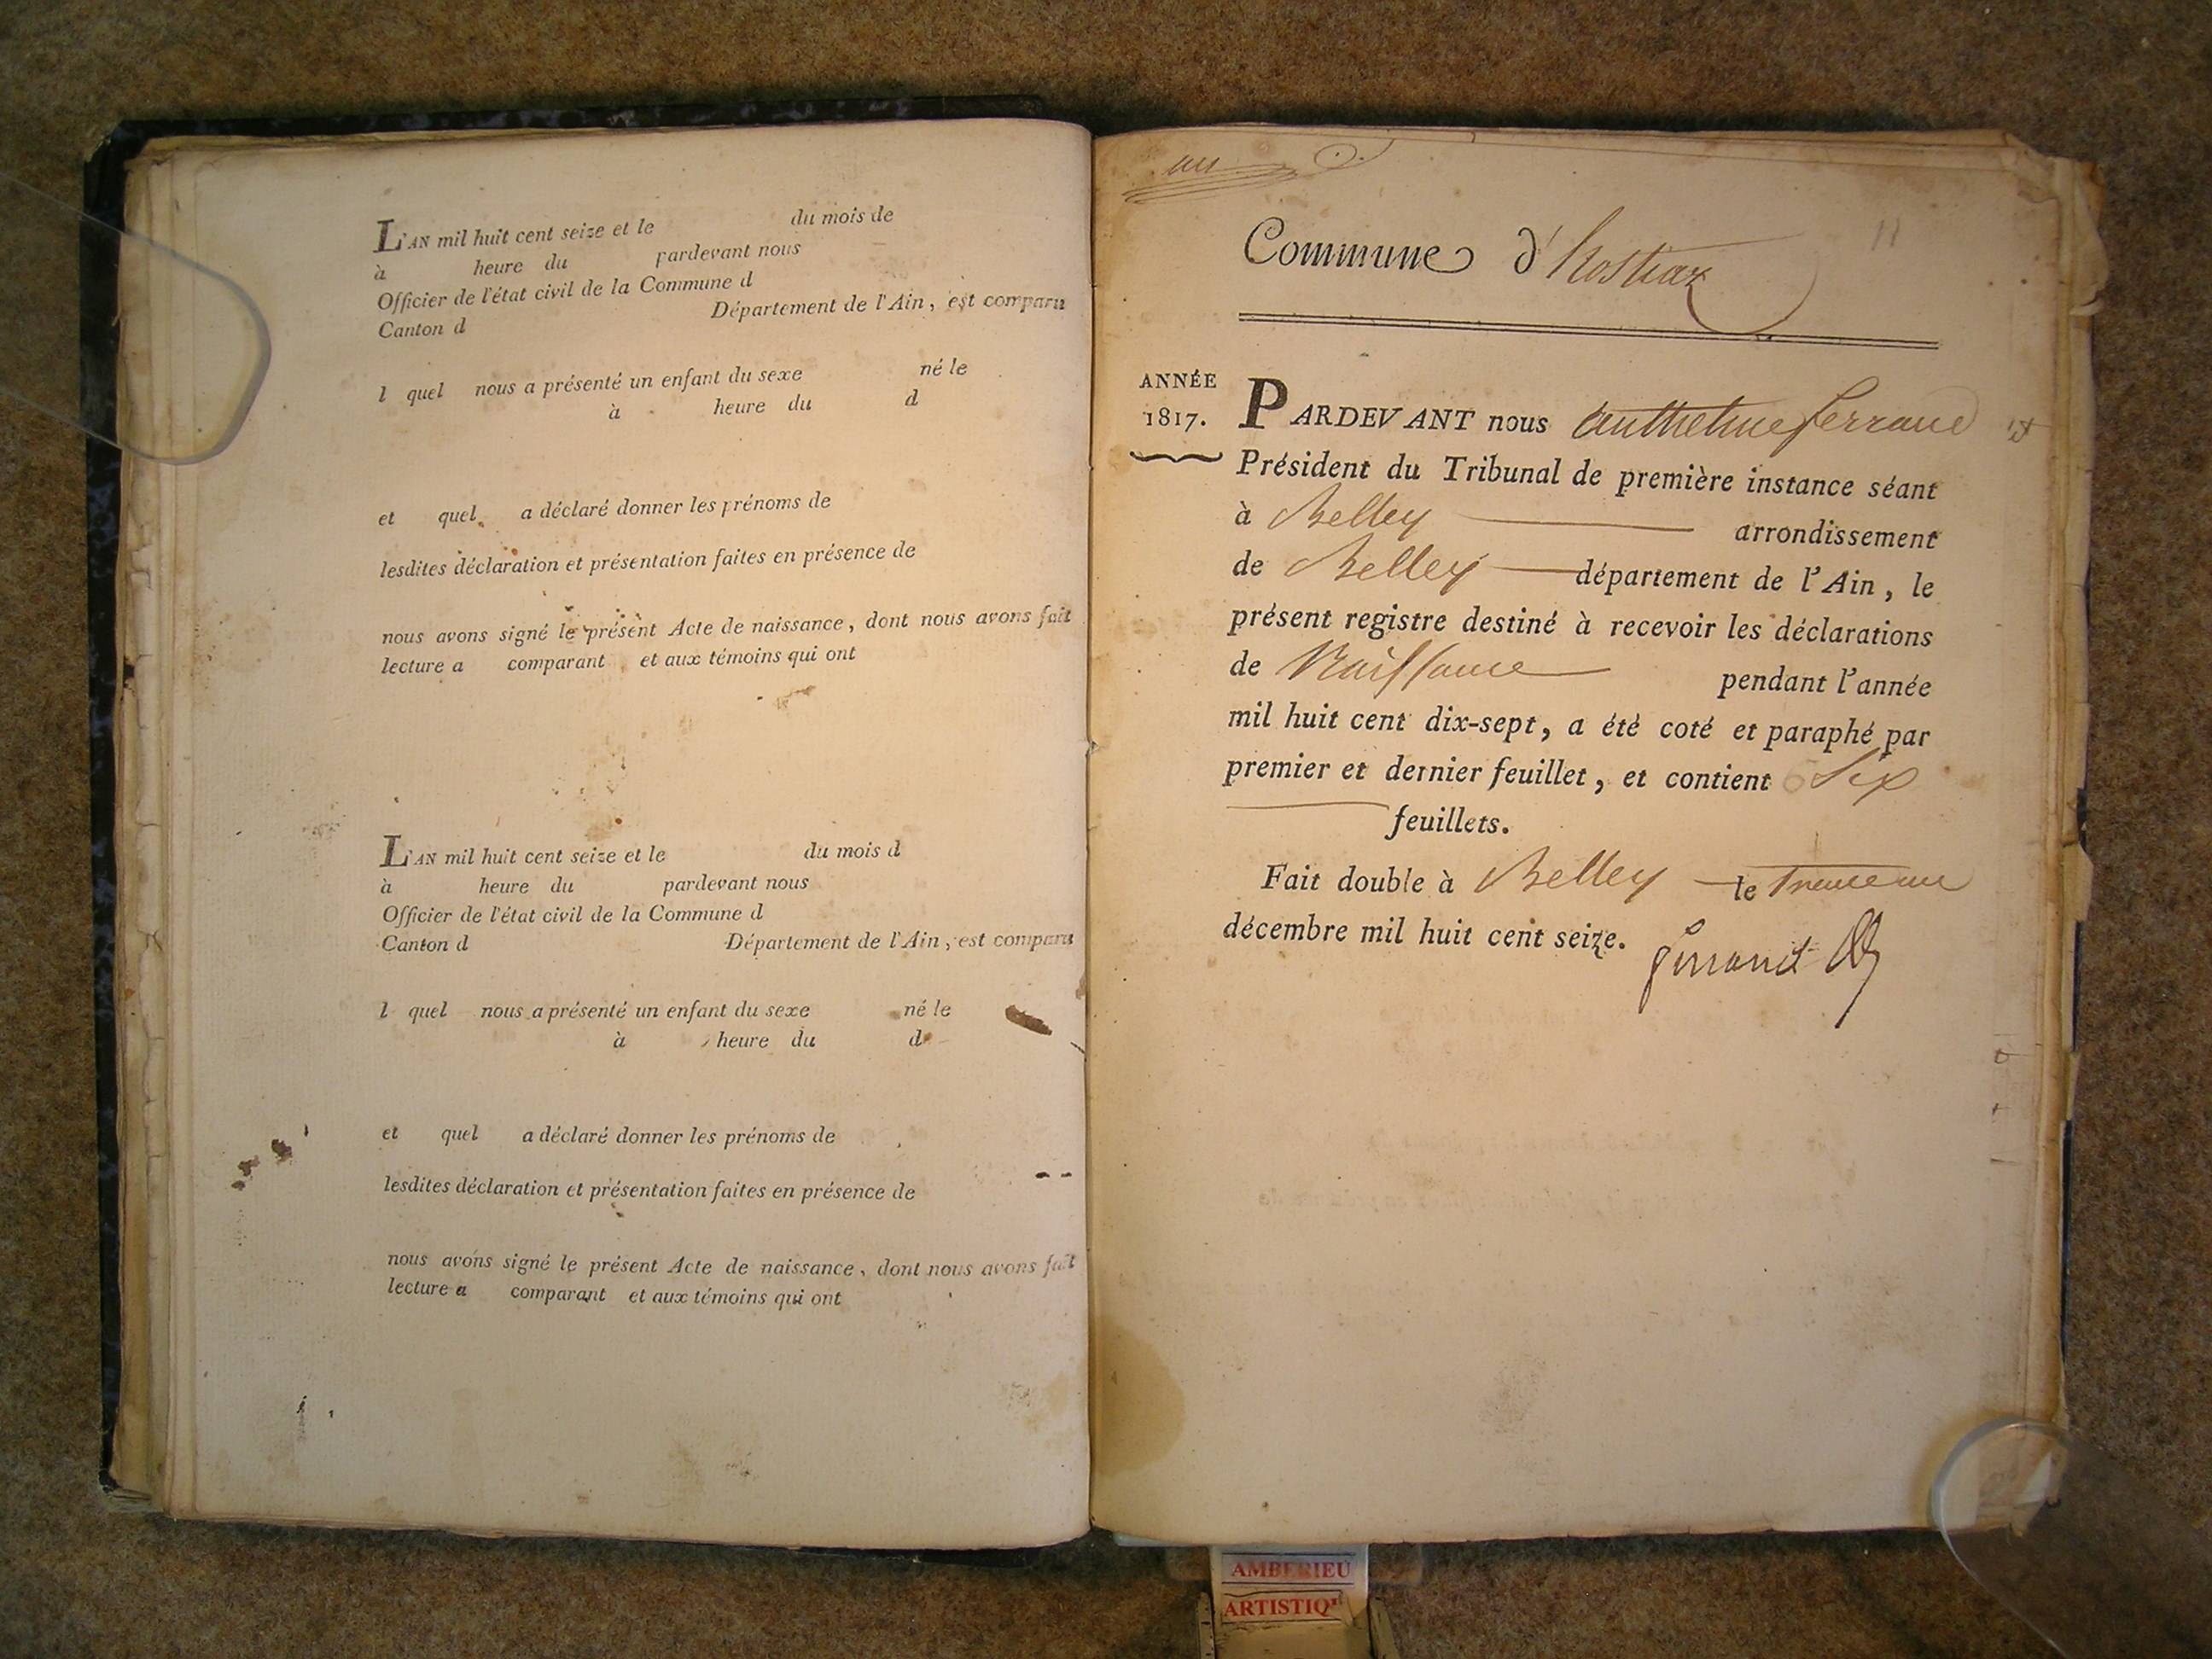 L'AN mil huit cent seize et le du mois de
à heure du pardevant nous
Officier de l'état civil de la Commune d
Canton d Département de l'Ain, est comparu
l quel nous a présenté un enfant du sexe né le
à heure du d
et quel a déclaré donner les prénoms de
lesdites déclaration et présentation faites en présence de
nous avons signé le présent Acte de naissance, dont nous avons fait
lecture a comparant et aux témoins qui ont
L'AN mil huit cent seize et le du mois d
à heure du pardevant nous
Officier de l'état civil de la Commune d
Canton d Département de l'Ain, est comparu
l quel nous a présenté un enfant du sexe né le
à heure du d
et quel a déclaré donner les prénoms de
lesdites déclaration et présentation faites en présence de
nous avons signé le présent Acte de naissance, dont nous avons fait
lecture a comparant et aux témoins qui ont
11
Commune d'hostiaz
ANNÉE
1817.
PARDEVANT nous Anthelme ferrand
Président du Tribunal de première instance séant
à Belley arrondissement
de Belley département de l'Ain, le
présent registre destiné à recevoir les déclarations
de Naissance pendant l'année
mil huit cent dix-sept, a été coté et paraphé par
premier et dernier feuillet, et contient Six
feuillets.
Fait double à Belley le trente un
décembre mil huit cent seize.
ferrand
AMBERIEU
ARTISTIQ